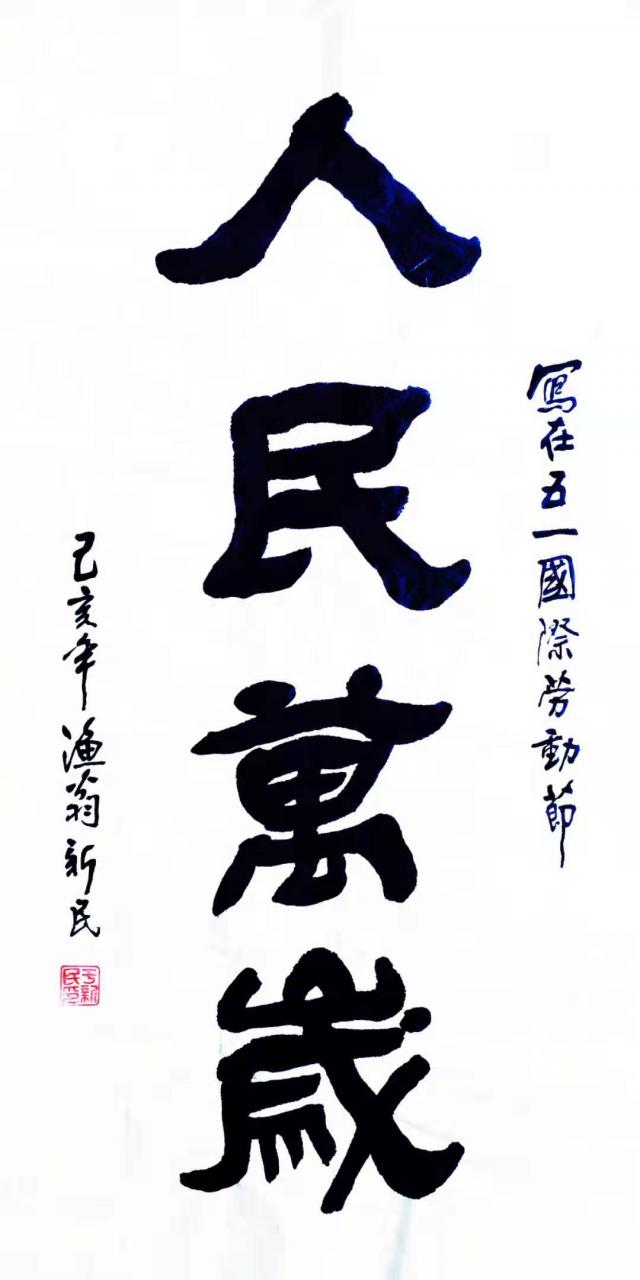 寫在五一國際勞動節
人民萬歲
己亥年漁翁新民
于新民印